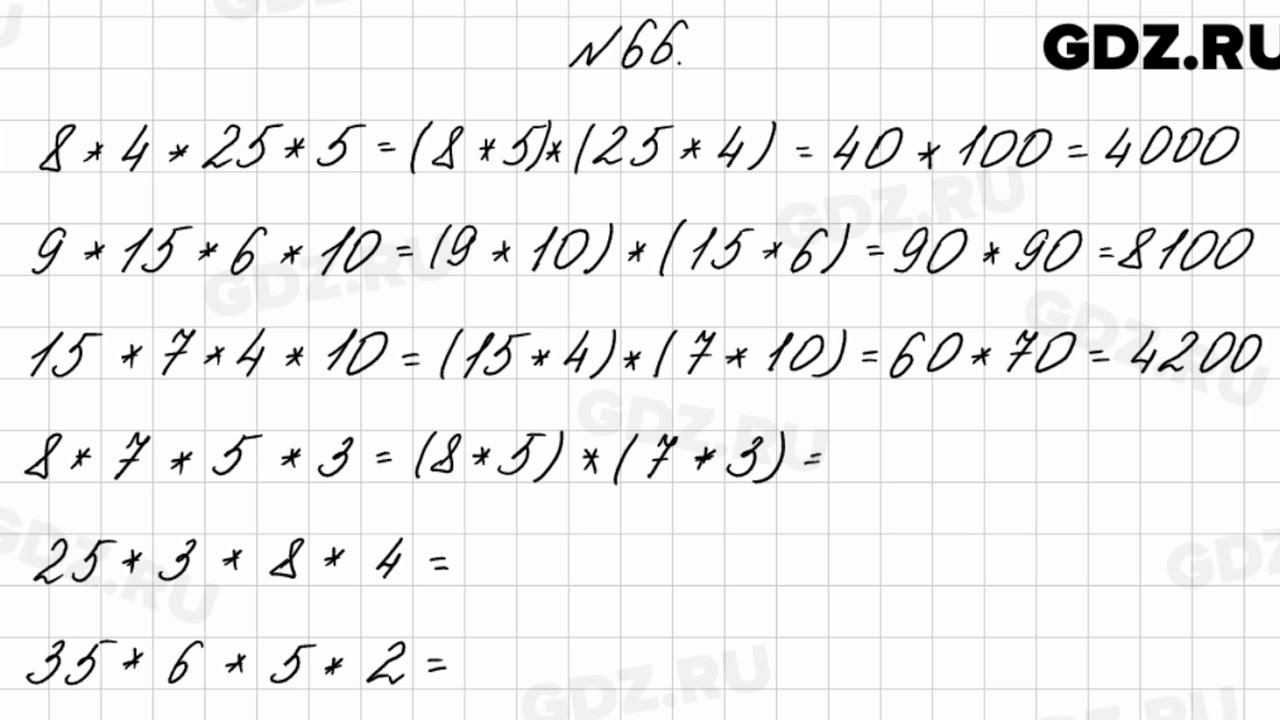 №66.
GDZ.RU
8 * 4 * 25 * 5 = (8 * 5) * (25 * 4) = 40 * 100 = 4000
9 * 15 * 6 * 10 = (9 * 10) * (15 * 6) = 90 * 90 = 8100
15 * 7 * 4 * 10 = (15 * 4) * (7 * 10) = 60 * 70 = 4200
8 * 7 * 5 * 3 = (8 * 5) * (7 * 3) =
25 * 3 * 8 * 4 =
35 * 6 * 5 * 2 =